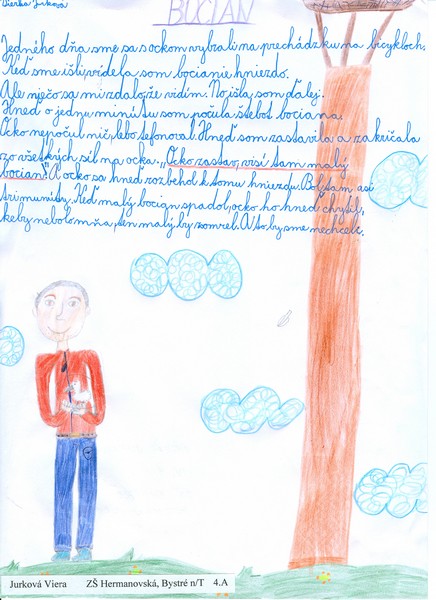 Vierka Jurková
BOCIAN
Jedného dňa sme sa s ockom vybrali na prechádzku na bicykloch.
Keď sme išli, videla som bocianie hniezdo.
Ale niečo sa mi zdalo, že vidím. No išla som ďalej.
Hneď o jednu minútu som počula štebot bociana.
Ocko nepočul nič, lebo telefonoval. Hneď som zastavila a zakričala
zo všetkých síl na ocka: „Ocko zastav, visí tam malý
bocian!" A ocko sa hneď rozbehol k tomu hniezdu. Bol tam asi
tri minúty. Keď malý bocian spadol, ocko ho hneď chytil,
keby nebolo mňa, ten malý by zomrel. A to by sme nechceli.
Jurková Viera ZŠ Hermanovská, Bystré n/T 4.A